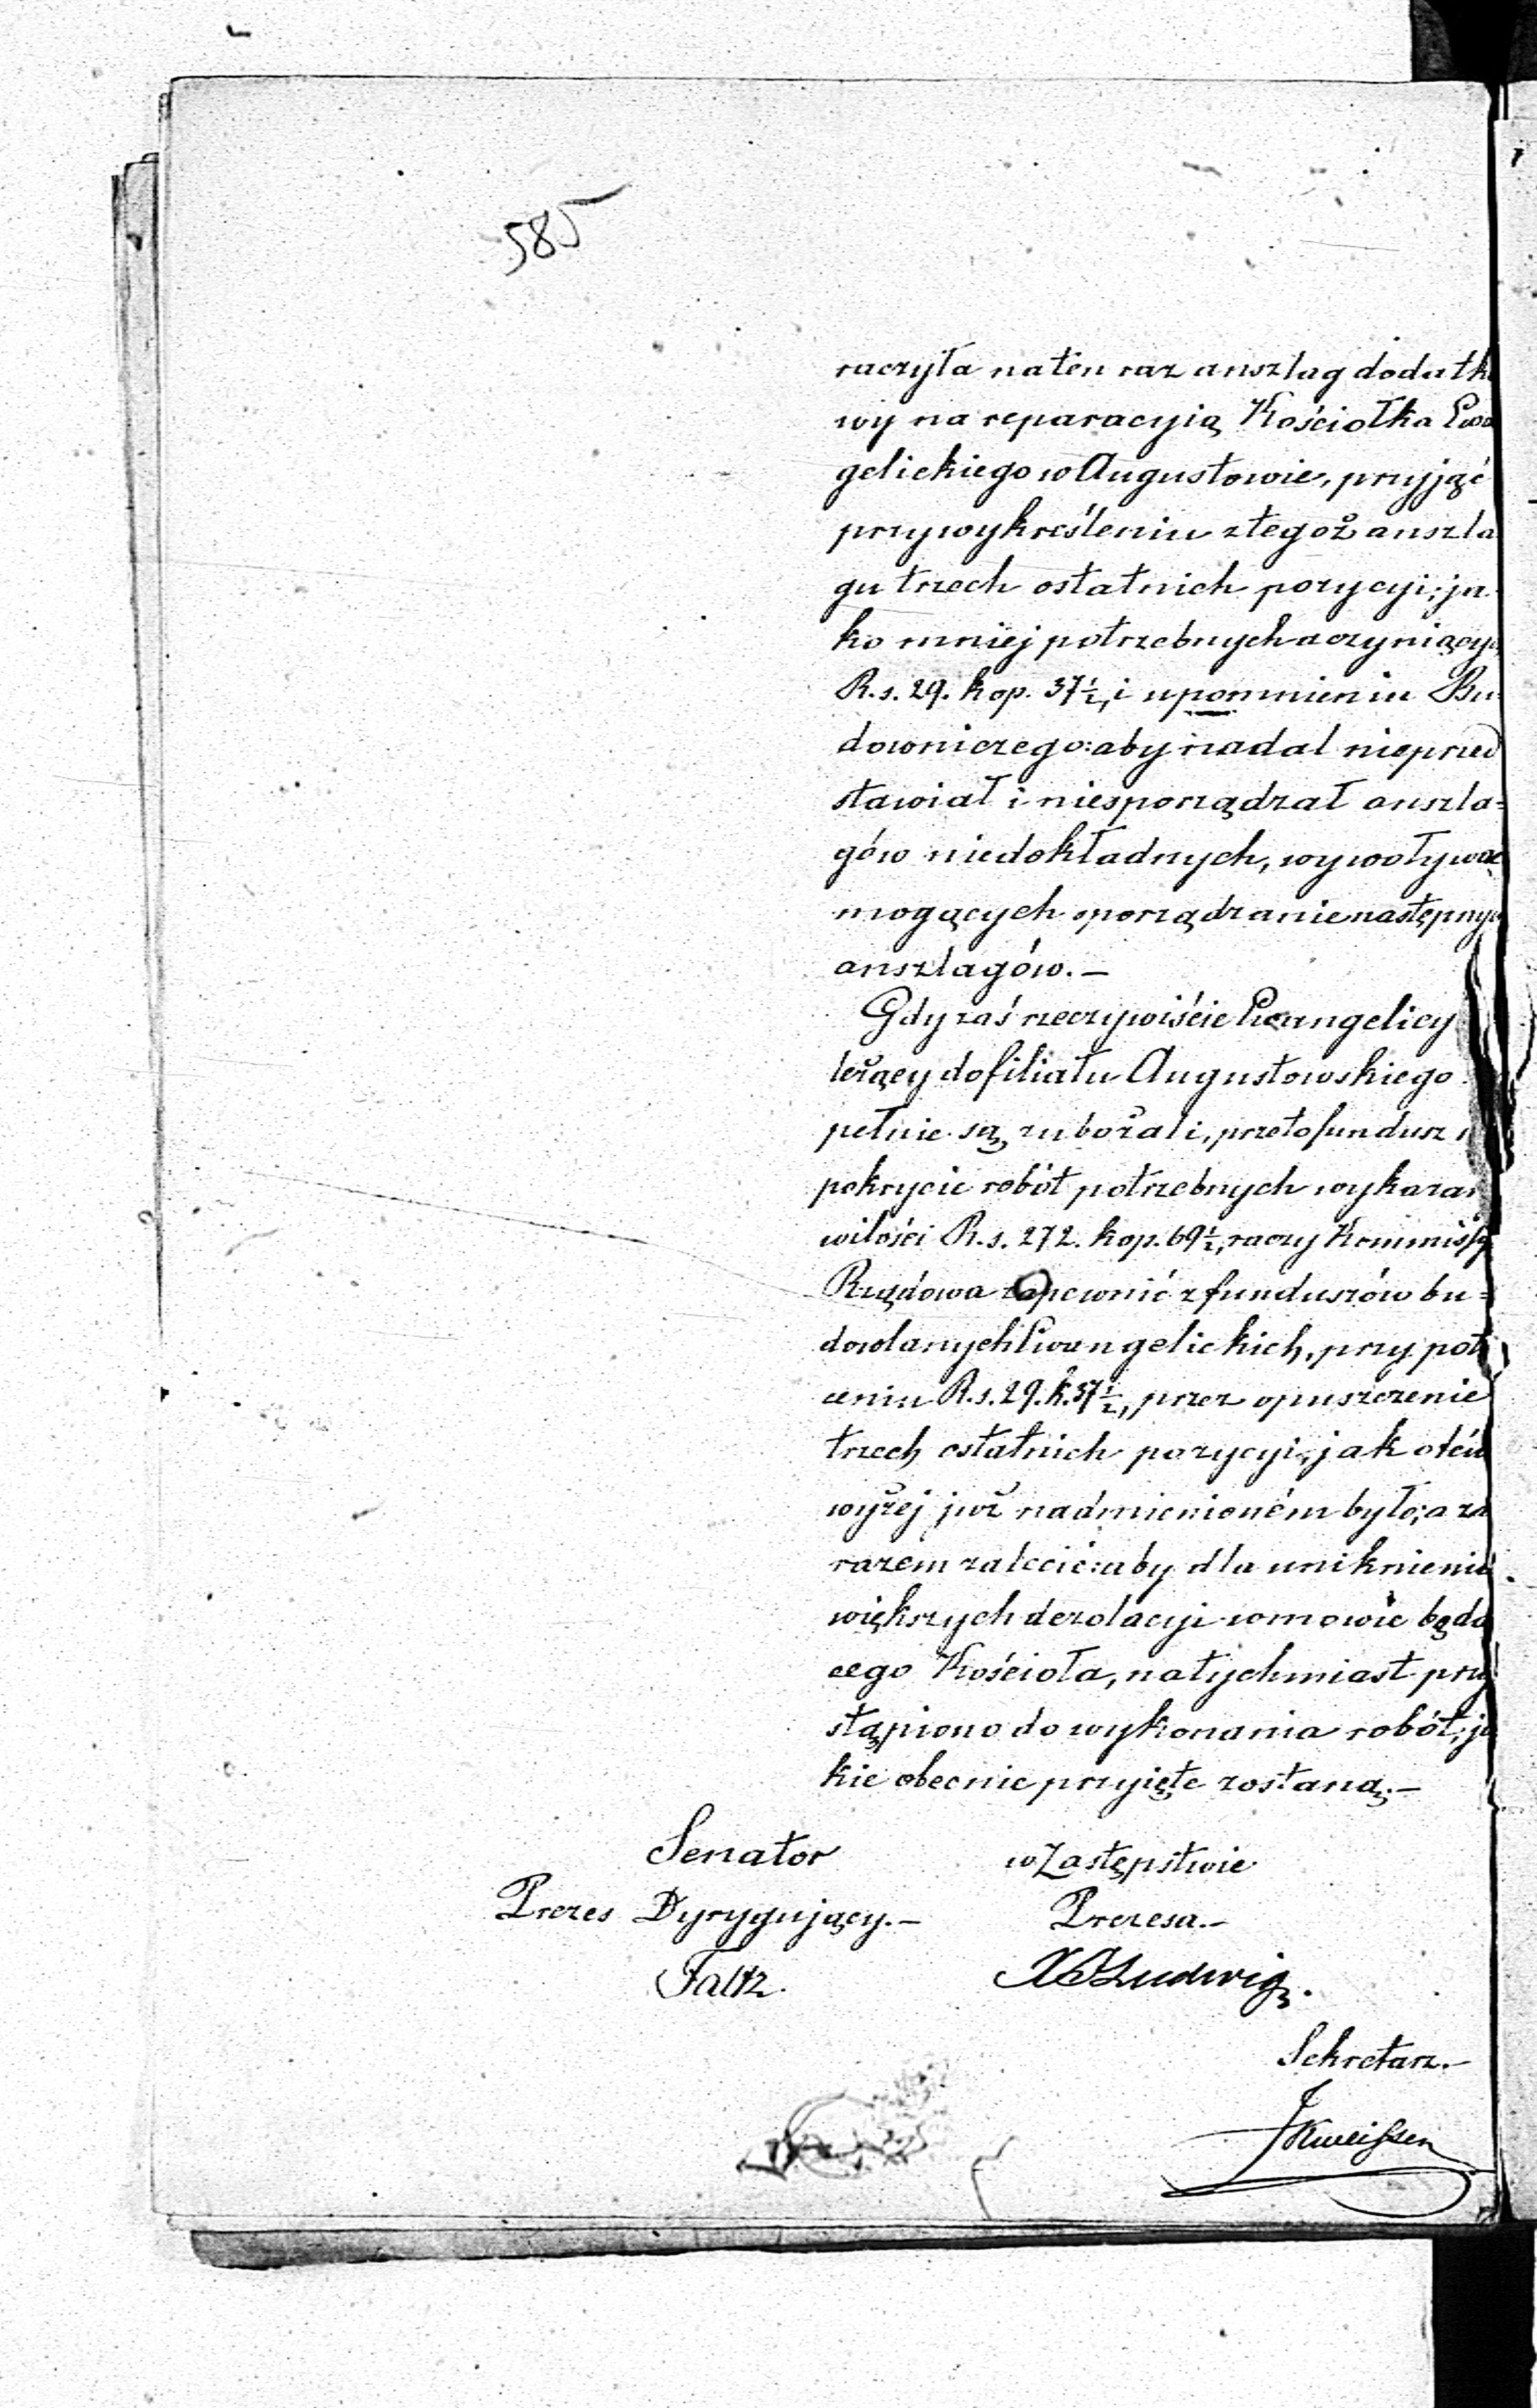 585
raczyła na ten raz anszlag dodatk
wy na reparacyią Kościołka Ewa
gelickiego w Augustowie, przyjąć
przy wykreśleniu z tegoż anszla
gu trzech ostatnich pozycyi; ja
ko mniej potrzebnych a czyniący
R. s. 29. kop. 37½, i upomnieniu Bu
downiczego: aby nadal nieprzed
stawiał i niesporządzał anszla=
gów niedokładnych, wywoływać
mogących sporządzanie następny
anszlagów. —
Gdy zaś rzeczywiście Ewangelicy
leżący do filiału Augustowskiego
pełnie są zubożali, przeto fundusz
pokrycie robót potrzebnych wykaza
wilości R. s. 272. kop. 69½, raczy Kommiss
Rządowa zapewnić z funduszów bu=
dowlanych Ewangelickich, przy pot
ceniu R. s. 29. k. 37½, przez opuszczenie
trzech ostatnich pozycyi, jak otém
wyżej już nadmienioném było; a za
razem zalecić: aby dla uniknienia
większych dezolacyi w mowie będą
cego Kościoła, natychmiast przy
stąpiono do wykonania robót, ja
kie obecnie przyięte zostaną. —
Senator
Prezes Dyrygujący. —
Faltz.
w Zastępstwie
Prezesa. —
Ludwig.
Sekretarz. —